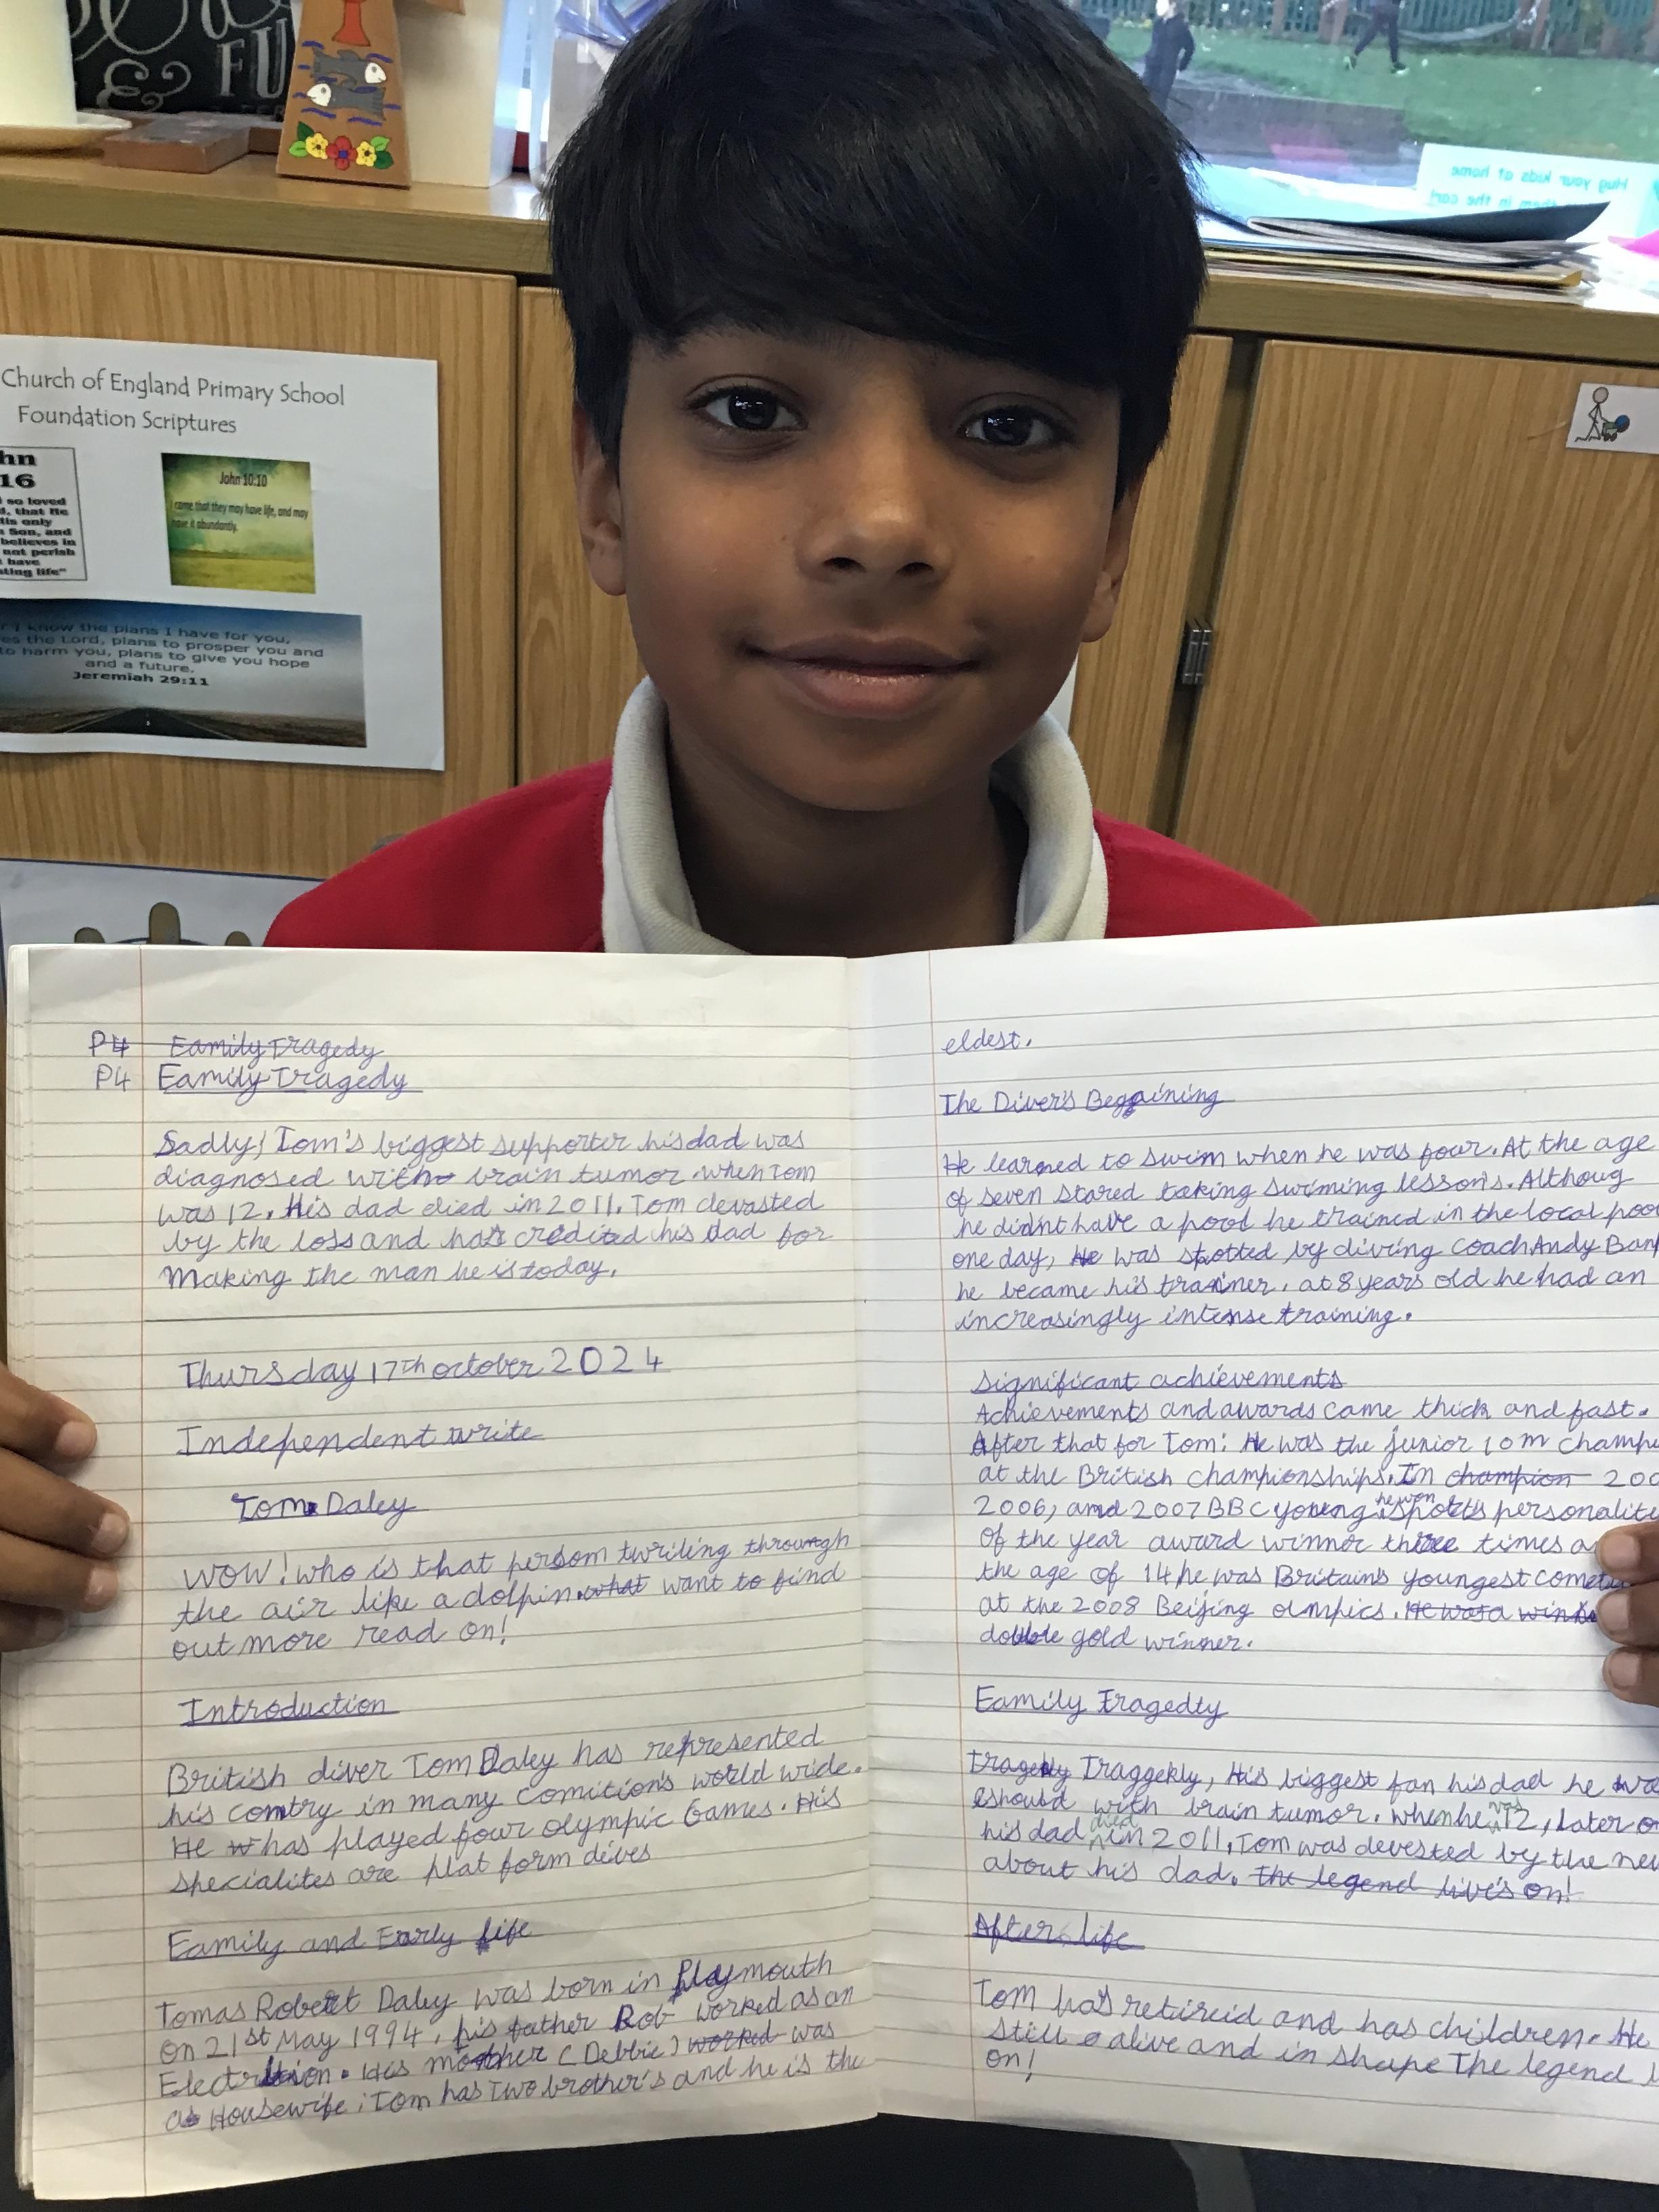 FU
Church of England Primary School
Foundation Scriptures
hn
16
so loved
d, that He
his only
Son, and
believes in
not perish
have
ating life"
John 10:10
I came that they may have life, and may
have it abundantly.
I know the plans I have for you,
es the Lord, plans to prosper you and
to harm you, plans to give you hope
and a future.
Jeremiah 29:11
Hug your kids at home
in the car!
P4 Family Tragedy
P4 Family Tragedy
Sadly, Tom's biggest supporter his dad was
diagnosed with brain tumor when Tom
was 12. His dad died in 2011. Tom devasted
by the loss and has credited his dad for
Making the man he is today.
Thursday 17th october 2024
Independent write
Tom Daley
WOW! who is that person twriling through
the air like a dolpin. what want to find
out more read on!
Introduction
British diver Tom Daley has represented
his contry in many comition's world wide.
He has played four olympic Games. His
specialites are plat form dives
Family and Early life
Tomas Robert Daley was born in Playmouth
on 21st May 1994. his father Rob worked as an
Electrition. His mother (Debbie) worked was
as Housewife; Tom has Two brother's and he is the
eldest.
The Diver's Beggining
He learned to swim when he was four. At the age
of seven stared taking swiming lesson's. Althoug
he didn't have a pool he trained in the local pool
one day, He was spotted by diving coach Andy Ban
he became his trainer. at 8 years old he had an
increasingly intense training.
Significant achievements
Achievements and awards came thick and fast.
After that for Tom: He was the junior 10m champ
at the British championships. In champion 200
2006, and 2007 BBC young he won sports personalite
of the year award winner three times a
the age of 14 he was Britain's youngest comet
at the 2008 Beijing olmpics. He was a win
double gold winner.
Family Tragedty
tragedy Traggekly, His biggest fan his dad he wa
eshould with brain tumor. When he was 12, Later o
his dad died in 2011, Tom was devested by the new
about his dad. the legend live's on!
After life
Tom has retireid and has children. He
still alive and in shape The legend l
on!